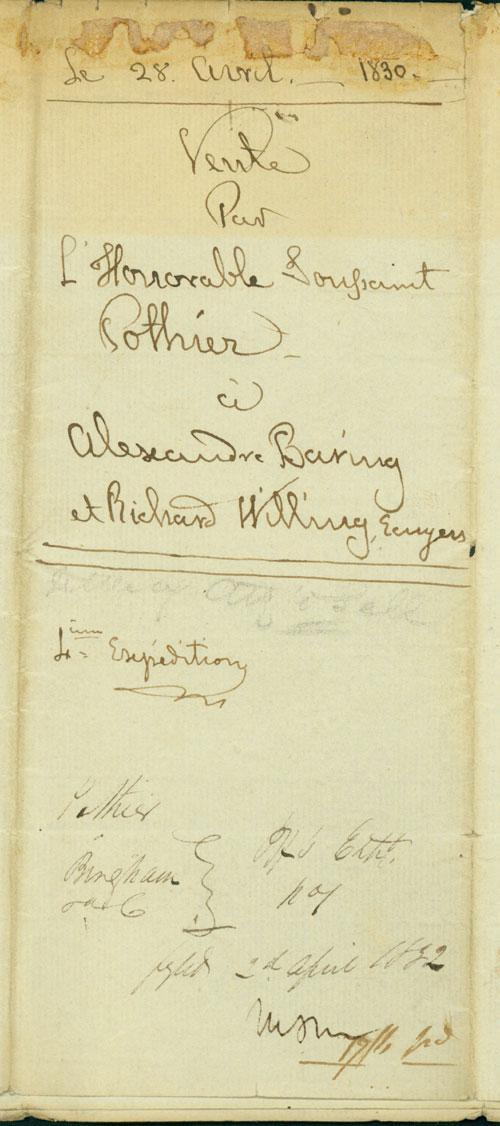 Le 28. Avril. — 1830.
Vente
Par
L'Honorable Toussaint
Pothier
à
Alexandre Baring
et Richard Willing, Ecuyers
4ieme Expédition
Pothier
Bingham
Exht.
fyled 2d April 1832